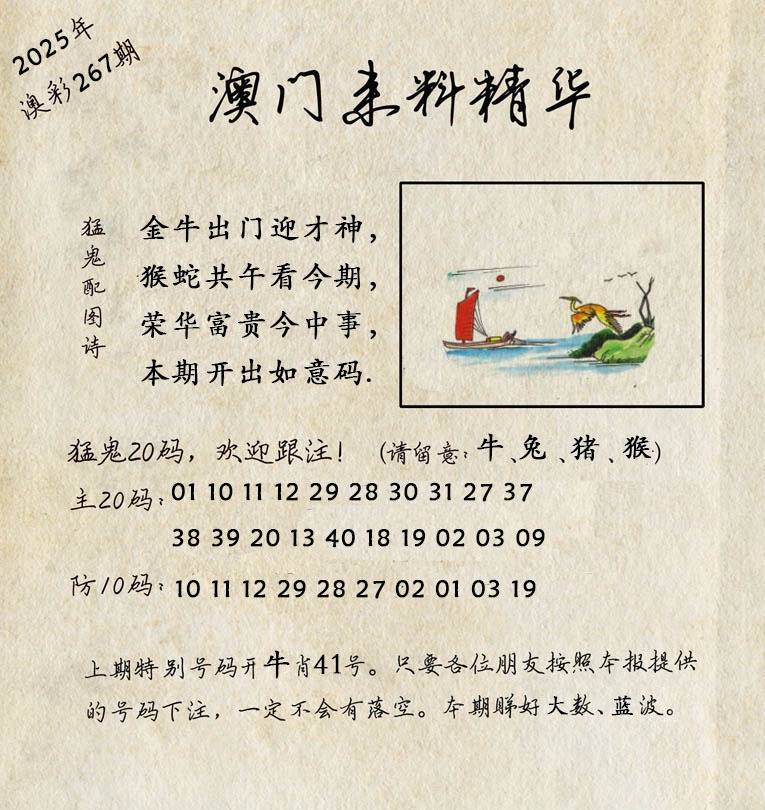 2025年
澳彩267期
澳门来料精华
猛鬼配图诗
金牛出门迎才神，
猴蛇共午看今期，
荣华富贵今中事，
本期开出如意码.
猛鬼20码，欢迎跟注！（请留意：牛、兔、猪、猴）
主20码：01 10 11 12 29 28 30 31 27 37
38 39 20 13 40 18 19 02 03 09
防10码：10 11 12 29 28 27 02 01 03 19
上期特别号码开牛肖41号。只要各位朋友按照本报提供
的号码下注，一定不会有落空。本期睇好大数、蓝波。